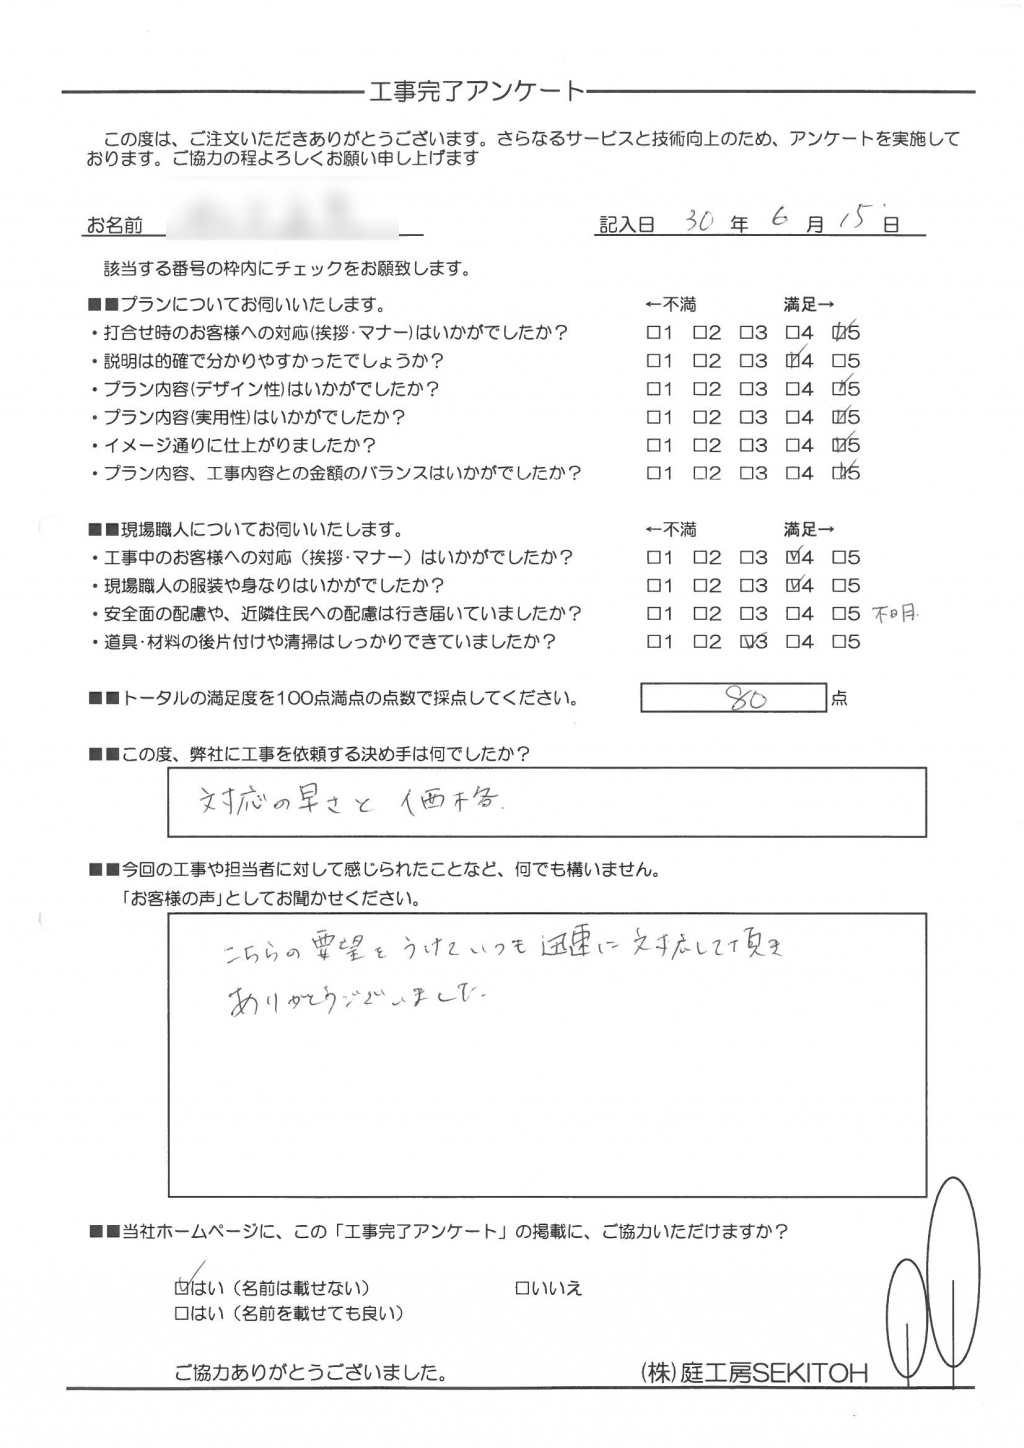 工事完了アンケート
この度は、ご注文いただきありがとうございます。さらなるサービスと技術向上のため、アンケートを実施して
おります。ご協力の程よろしくお願い申し上げます
お名前 記入日 30 年 6 月 15 日
該当する番号の枠内にチェックをお願致します。
■■プランについてお伺いいたします。 ←不満 満足→
・打合せ時のお客様への対応(挨拶・マナー)はいかがでしたか? □1 □2 □3 □4 ☑5
・説明は的確で分かりやすかったでしょうか? □1 □2 □3 ☑4 □5
・プラン内容(デザイン性)はいかがでしたか? □1 □2 □3 □4 ☑5
・プラン内容(実用性)はいかがでしたか? □1 □2 □3 □4 ☑5
・イメージ通りに仕上がりましたか? □1 □2 □3 □4 ☑5
・プラン内容、工事内容との金額のバランスはいかがでしたか? □1 □2 □3 □4 ☑5
■■現場職人についてお伺いいたします。 ←不満 満足→
・工事中のお客様への対応(挨拶・マナー)はいかがでしたか? □1 □2 □3 ☑4 □5
・現場職人の服装や身なりはいかがでしたか? □1 □2 □3 ☑4 □5
・安全面の配慮や、近隣住民への配慮は行き届いていましたか? □1 □2 □3 □4 □5 不明
・道具・材料の後片付けや清掃はしっかりできていましたか? □1 □2 ☑3 □4 □5
■■トータルの満足度を100点満点の点数で採点してください。 80 点
■■この度、弊社に工事を依頼する決め手は何でしたか?
対応の早さと 価格.
■■今回の工事や担当者に対して感じられたことなど、何でも構いません。
「お客様の声」としてお聞かせください。
こちらの要望をうけていつも迅速に対応して頂き
ありがとうございました.
■■当社ホームページに、この「工事完了アンケート」の掲載に、ご協力いただけますか?
☑はい(名前は載せない) □いいえ
□はい(名前を載せても良い)
ご協力ありがとうございました。 (株)庭工房SEKITOH